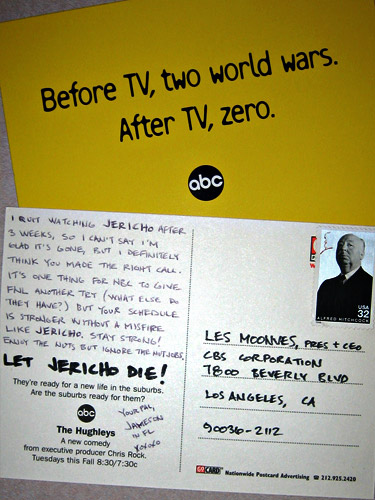 Before TV, two world wars.
After TV, zero.
abc
I QUIT WATCHING JERICHO AFTER
3 WEEKS, SO I CAN'T SAY I'M
GLAD IT'S GONE, BUT I DEFINITELY
THINK YOU MADE THE RIGHT CALL.
IT'S ONE THING FOR NBC TO GIVE
FNL ANOTHER TRY (WHAT ELSE DO
THEY HAVE?) BUT YOUR SCHEDULE
IS STRONGER WITHOUT A MISFIRE
LIKE JERICHO. STAY STRONG!
ENJOY THE NUTS BUT IGNORE THE NUTJOBS.
LET JERICHO DIE!
They're ready for a new life in the suburbs.
Are the suburbs ready for them?
abc
The Hughleys
A new comedy
from executive producer Chris Rock.
Tuesdays this Fall 8:30/7:30c
YOUR PAL,
JAMESON
IN FL
XOXOXO
USA
32
ALFRED HITCHCOCK
LES MOONVES, PRES + CEO
CBS CORPORATION
7800 BEVERLY BLVD
LOS ANGELES, CA
90036-2112
GOCARD Nationwide Postcard Advertising ☎ 212.925.2420